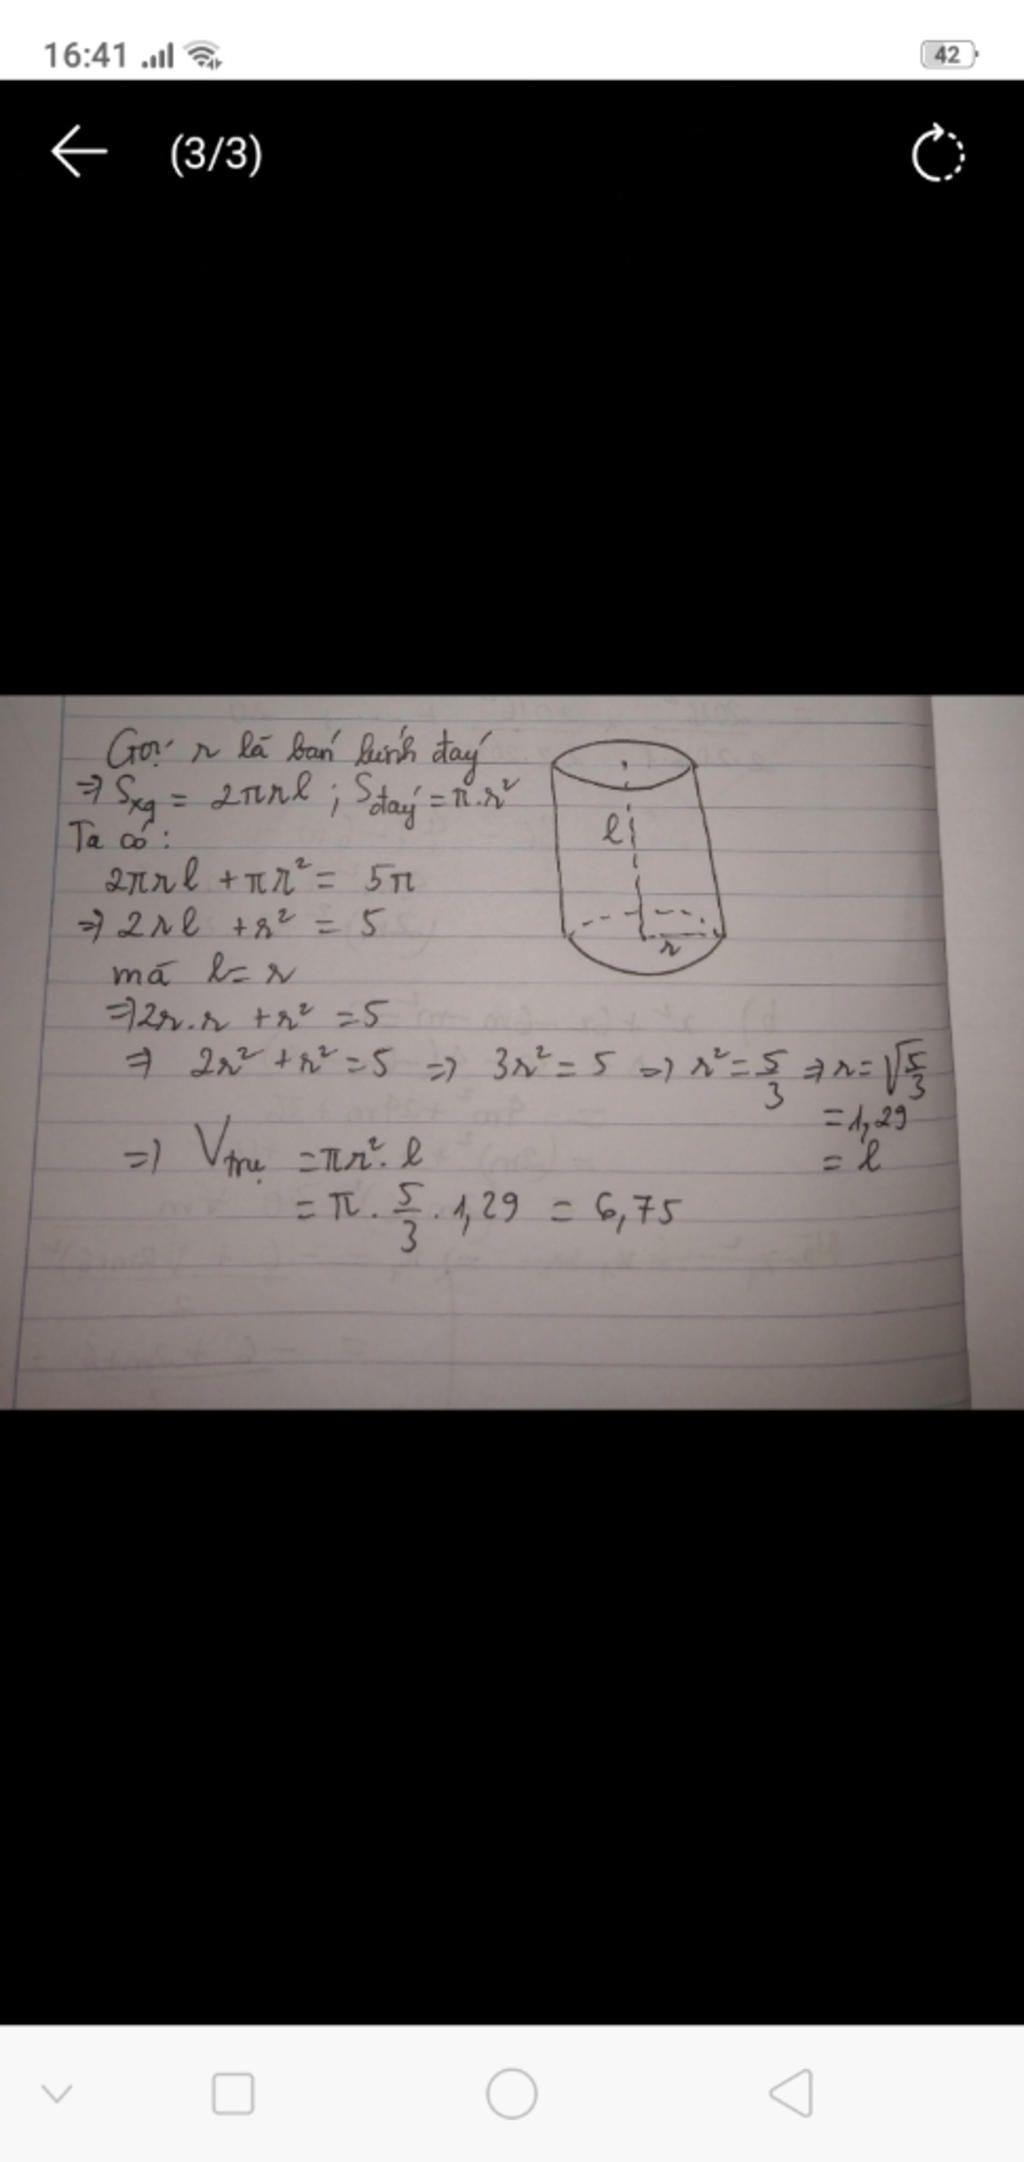 16:41
42
(3/3)
Gọi r là bán kính đáy
=> Sxg = 2πrl ; Sđáy = π.r²
Ta có:
2πrl + πr² = 5π
=> 2rl + r² = 5
mà l = r
=> 2r.r + r² = 5
=> 2r² + r² = 5 => 3r² = 5 => r² = 5/3 => r = √5/3
= 1,29
= l
=> Vtrụ = πr². l
= π . 5/3 . 1,29 = 6,75
l
r